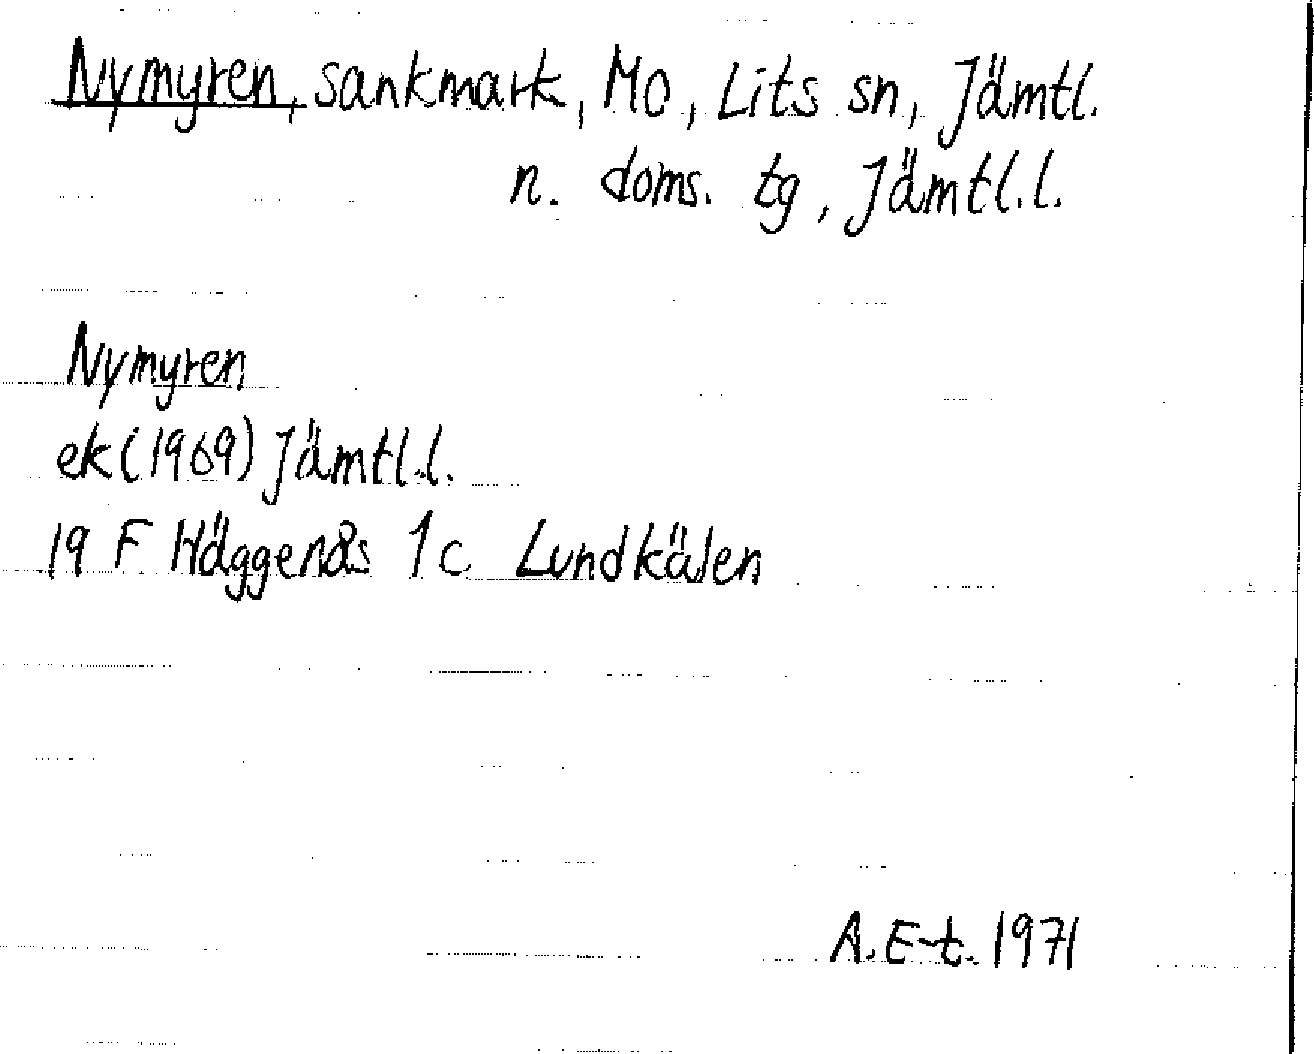 Nymyren, sankmark, Mo, Lits sn, Jämtl.
n. doms. tg, Jämtl.l.
Nymyren
ek (1969) Jämtl.l.
19 F Häggenås 1c Lundkälen
A. E-t. 1971